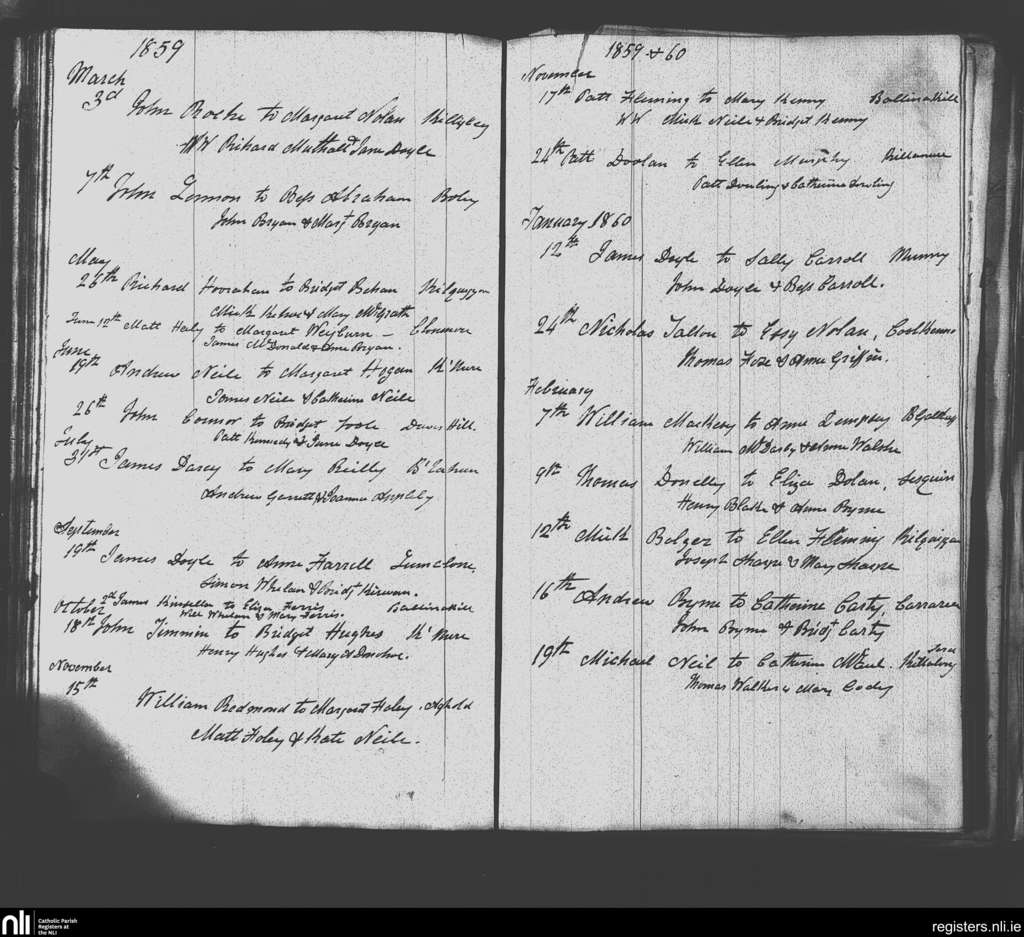 1859
March
3d John Roche to Margaret Nolan
WW Richard Muthall & Jane Doyle
7th John Lennon to Bess Abraham Boley
John Bryan & Margt Bryan
May
26th Richard to Bridget Behan Kilquiggan
Mick & Mary McGrath
June 12th Matt Healy to Margaret Weyburn - Clonmore
James McDonald & Anne Bryan.
June
19th Andrew Neile to Margaret Hogan K'Mure
James Neile & Catherine Neile
26th John Connor to Bridget Toole Davis Hill.
Patt Kennedy & Jane Doyle
July
31st James Darcy to Mary Reilly
Andrew Garrett & Joanna Appleby
September
19th James Doyle to Anne Farrell
Simon Whelan & Bridt Kirwan.
October 2nd James Kinsellan to Eliza Ferris Ballinakill
Will Whelan & Mary Ferris.
18th John Timmin to Bridget Hughes K'Mure
Henry Hughes & Mary A Donohoe.
November
15th
William Redmond to Margaret Foley. Aghold
Matt Foley & Kate Neile.
1859 & 60
November
17th Patt Fleming to Mary Kenny Ballinakill
WW Mick Neile & Bridget Kenny
24th Patt Doolan to Ellen Murphy
Patt Dowling & Catherine Dowling
January 1860
12th James Doyle to Sally Carroll Munny
John Doyle & Bess Carroll.
24th Nicholas Tallon to Essy Nolan,
Thomas & Anne Griffin.
February
7th William Mackey to Anne Dempsey
William McDarby & Anne Walshe
9th Thomas Donelley to Eliza Dolan,
Henry Blake & Anne Byrne
12th Mick Bolger to Ellen Fleming Kilquiggan
Joseph Sharpe & Mary Sharpe
16th Andrew Byrne to Catherine Carty,
John Byrne & Bridt Carty
19th Michael Neil to Catherine
Thomas Walker & Mary Cody
nli
Catholic Parish
Registers at
the NLI
registers.nli.ie